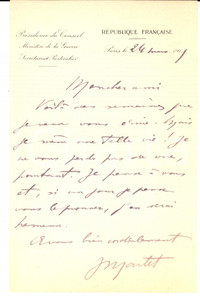 Présidence du Conseil
RÉPUBLIQUE FRANÇAISE
Ministère de la Guerre
Secrétariat Particulier
Paris, le 24
Mon cher ami
Voilà des semaines que
je veux vous écrire. Mais
je mène une telle vie ! Je
ne vous perds pas de vue,
pourtant. Je pense à vous
et, si un jour je peux
vous le prouver, j'en serai
heureux.
A vous bien cordialement
J Martet